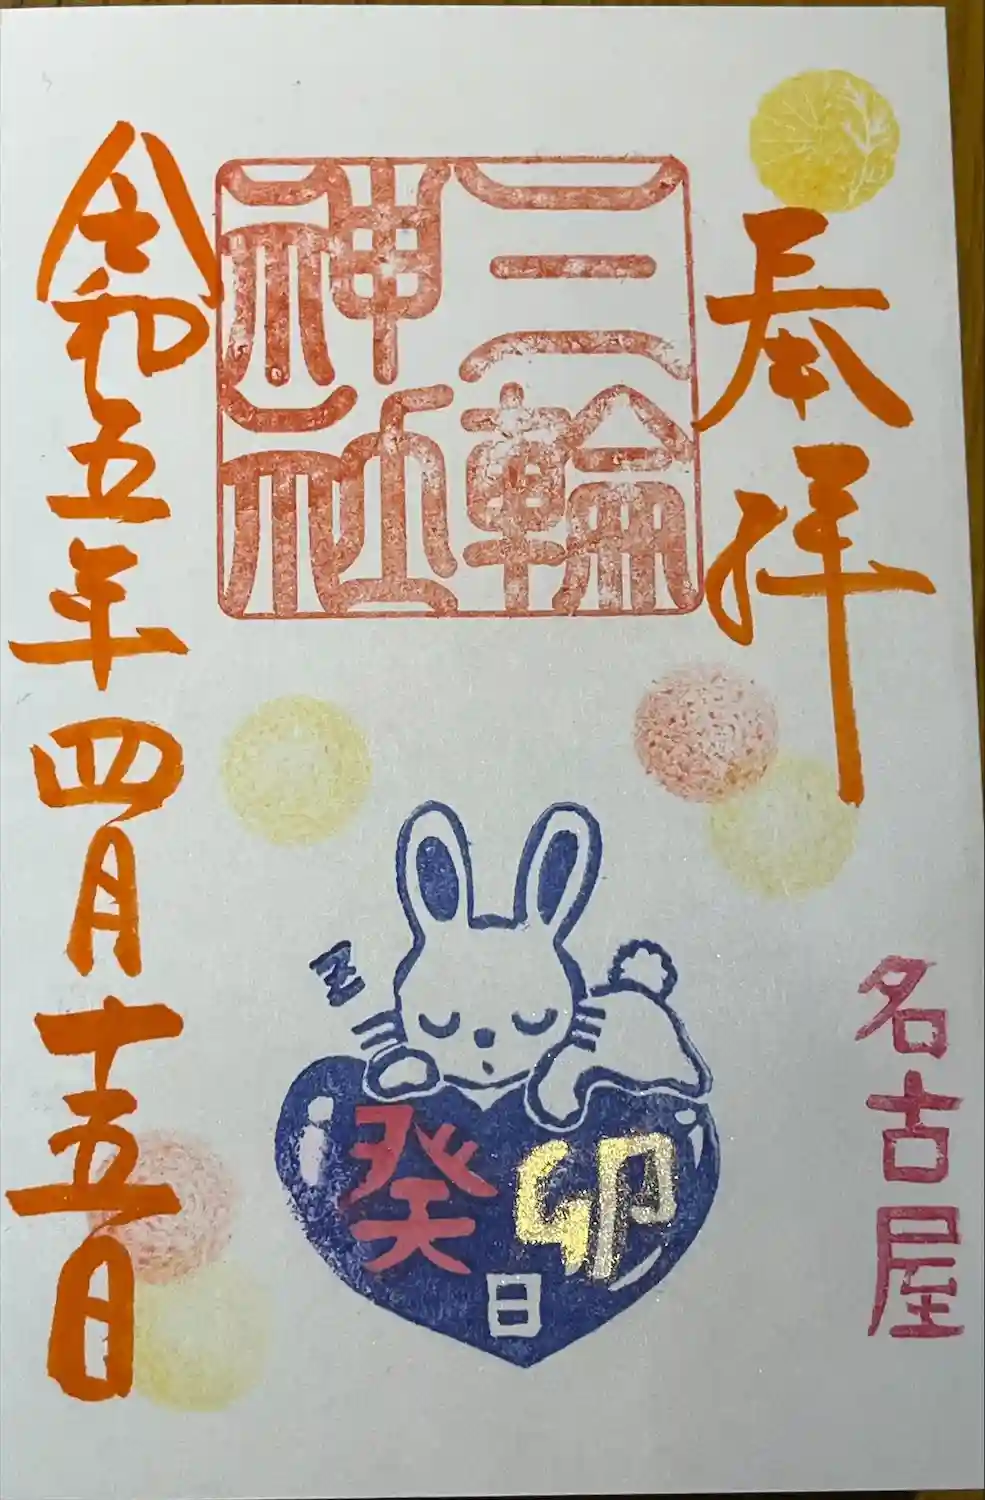 奉拝
名古屋
三輪
神社
zzz
癸卯
日
令和五年四月十五日